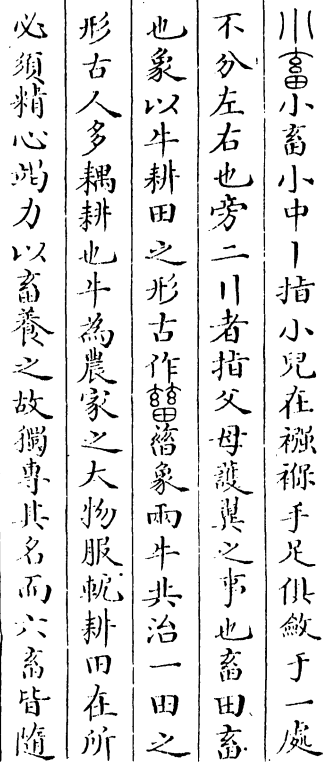 小畜小畜小中丨指小兒在襁褓手足俱斂于一處
不分左右也旁二〢者指父母護翼之事也畜田畜
也象以牛耕田之形古作䕎蓄象兩牛共治一田之
形古人多耦耕也牛為農家之大物服軛耕田在所
必須精心竭力以畜養之故獨專其名而六畜皆隨